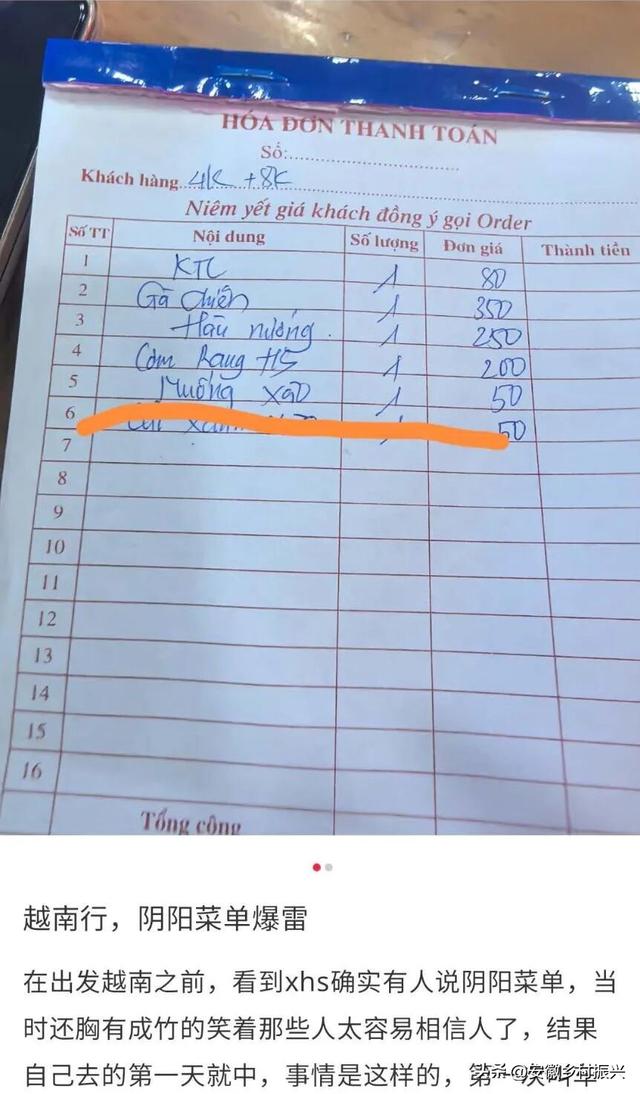 HÓA ĐƠN THANH TOÁN
Số:
Khách hàng 4K + 8K
Niêm yết giá khách đồng ý gọi Order
Số TT Nội dung Số lượng Đơn giá Thành tiền
1 KTC 1 80
2 Gà chiên 1 350
3 Hàu nướng 1 250
4 Cơm Rang HS 1 200
5 Muống xào 1 50
6 50
7
8
9
10
11
12
13
14
15
16
Tổng cộng
越南行，阴阳菜单爆雷
在出发越南之前，看到xhs确实有人说阴阳菜单，当
时还胸有成竹的笑着那些人太容易相信人了，结果
自己去的第一天就中，事情是这样的，第一次叫单
头条@安徽乡村振兴